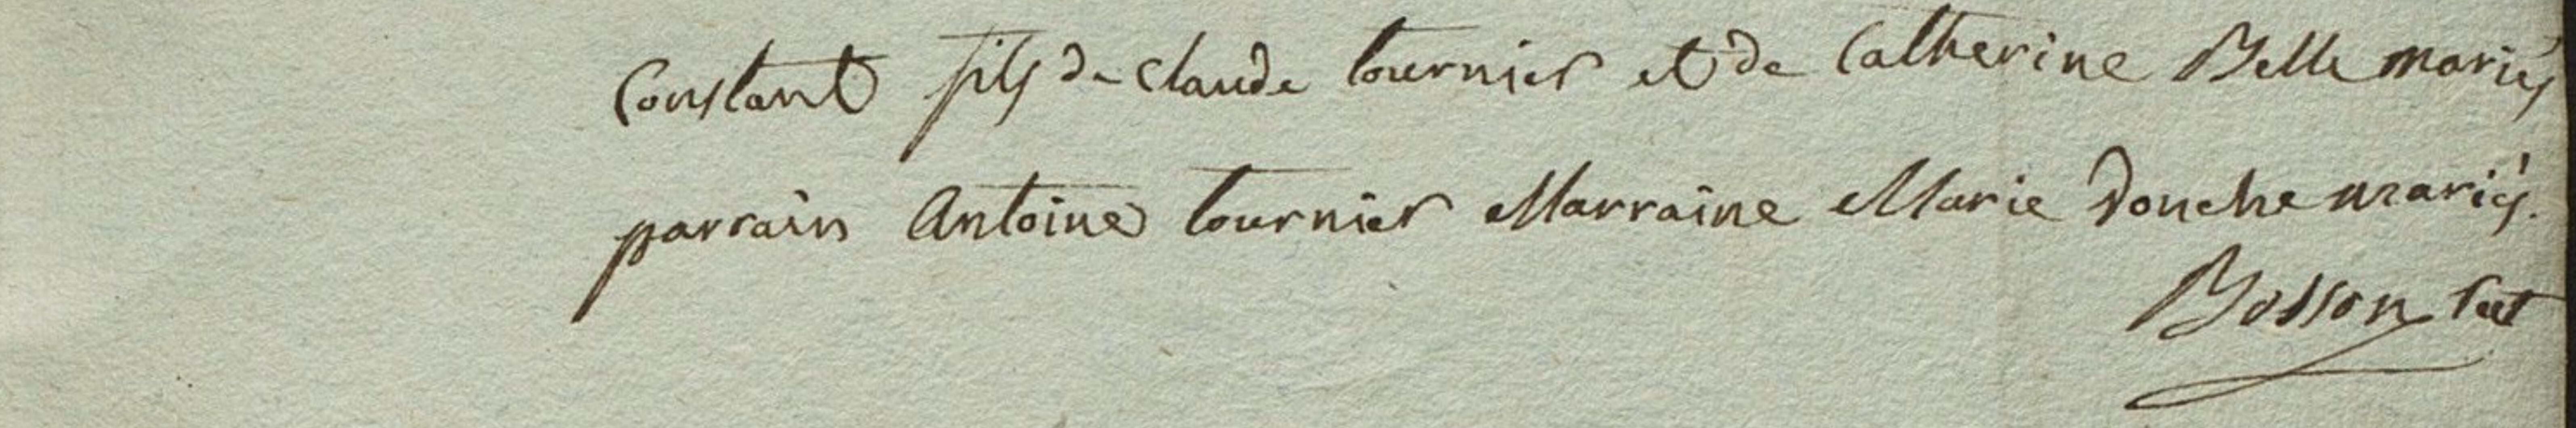 Constant fils de Claude tournier et de Catherine Belle mariés
parrain Antoine tournier Marraine Marie Douche mariés.
Bosson